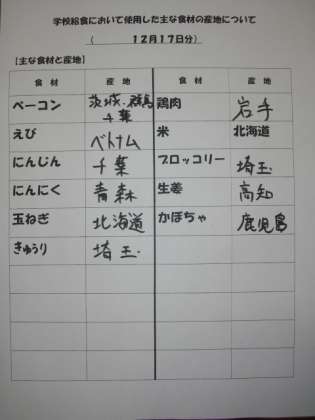 学校給食において使用した主な食材の産地について
( 12月17日分)
【主な食材と産地】
食 材 産 地 食 材 産 地
ベーコン 茨城・群馬 千葉 鶏肉 岩手
えび ベトナム 米 北海道
にんじん 千葉 ブロッコリー 埼玉
にんにく 青森 生姜 高知
玉ねぎ 北海道 かぼちゃ 鹿児島
きゅうり 埼玉